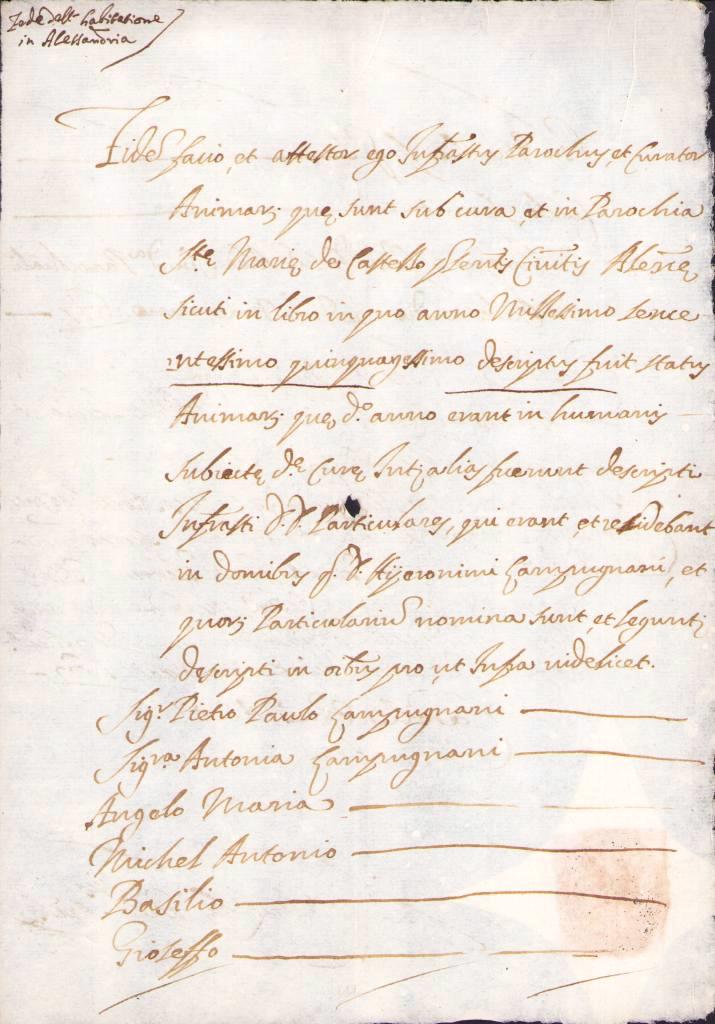 Fede dell' habitatione
in Alessandria
Fidẽ facio, et attestor ego Infrastus Parochus, et Curator
Animarȝ quę sunt sub cura, et in Parochia
Stę Marię de Castello Civitis Alexnę
sicuti in libro in quo anno Millessimo sexce
intessimo quinquagessimo descriptus fuit status
Animarȝ quę d.º anno erant in humanis
subiectę d.ę Curę Int alias fuerunt descripti
Infrasti d. d. Particulares, qui erant, et residebant
in domibus d. Hyeronimi Campugnani, et
quorȝ Particulariũ nomina sunt, et legunt
descripti in pro ut Infra videlicet.
Sig.r Pietro Paulo Campugnani
Sig.ra Antonia Campugnani
Angelo Maria
Michel Antonio
Basilio
Gioseffo